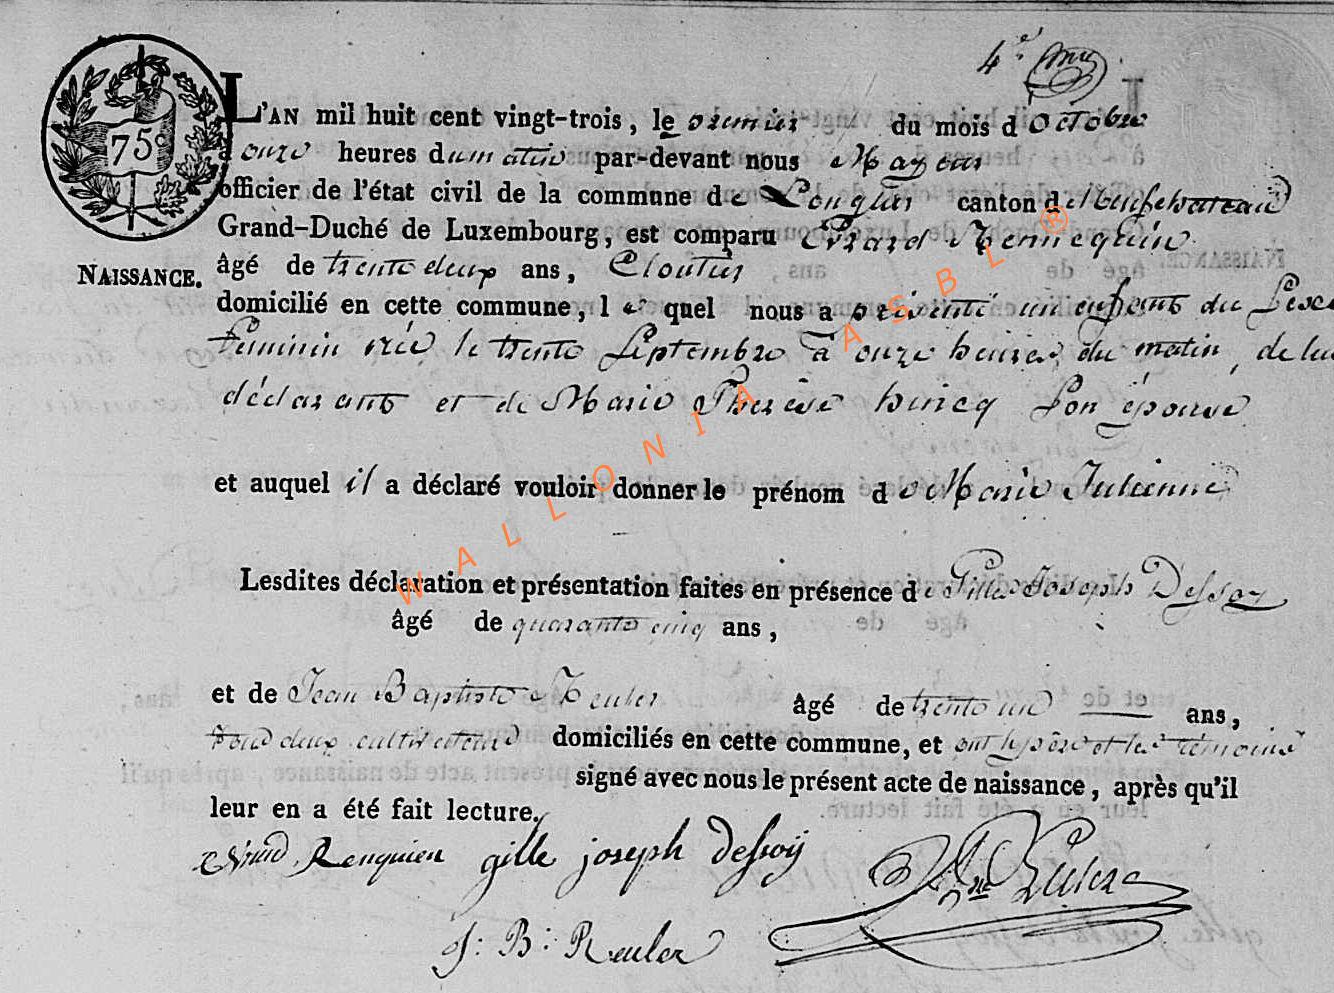 4.e
75c
L'AN mil huit cent vingt-trois, le premier du mois d'Octobre
à onze heures du matin par-devant nous Mayeur
officier de l'état civil de la commune de Longlier canton de Neufchateau
Grand-Duché de Luxembourg, est comparu Evrard Rennequin
NAISSANCE. âgé de trente deux ans, Cloutier
domicilié en cette commune, le quel nous a présenté un enfant du Sexe
feminin née le trente Septembre à onze heures du matin, de lui
déclarant et de Marie Therèse hincq Son épouse
et auquel il a déclaré vouloir donner le prénom de Marie Julienne
Lesdites déclaration et présentation faites en présence de Gille Joseph Dessoy
âgé de quarante cinq ans,
et de Jean Baptiste Reuler âgé de trente un ans,
tous deux cultivateurs domiciliés en cette commune, et ont le père et les témoins
signé avec nous le présent acte de naissance, après qu'il
leur en a été fait lecture.
Evrard Renquien gille joseph dessoij
J: B: Reuler
WALLONIA ASBL ®